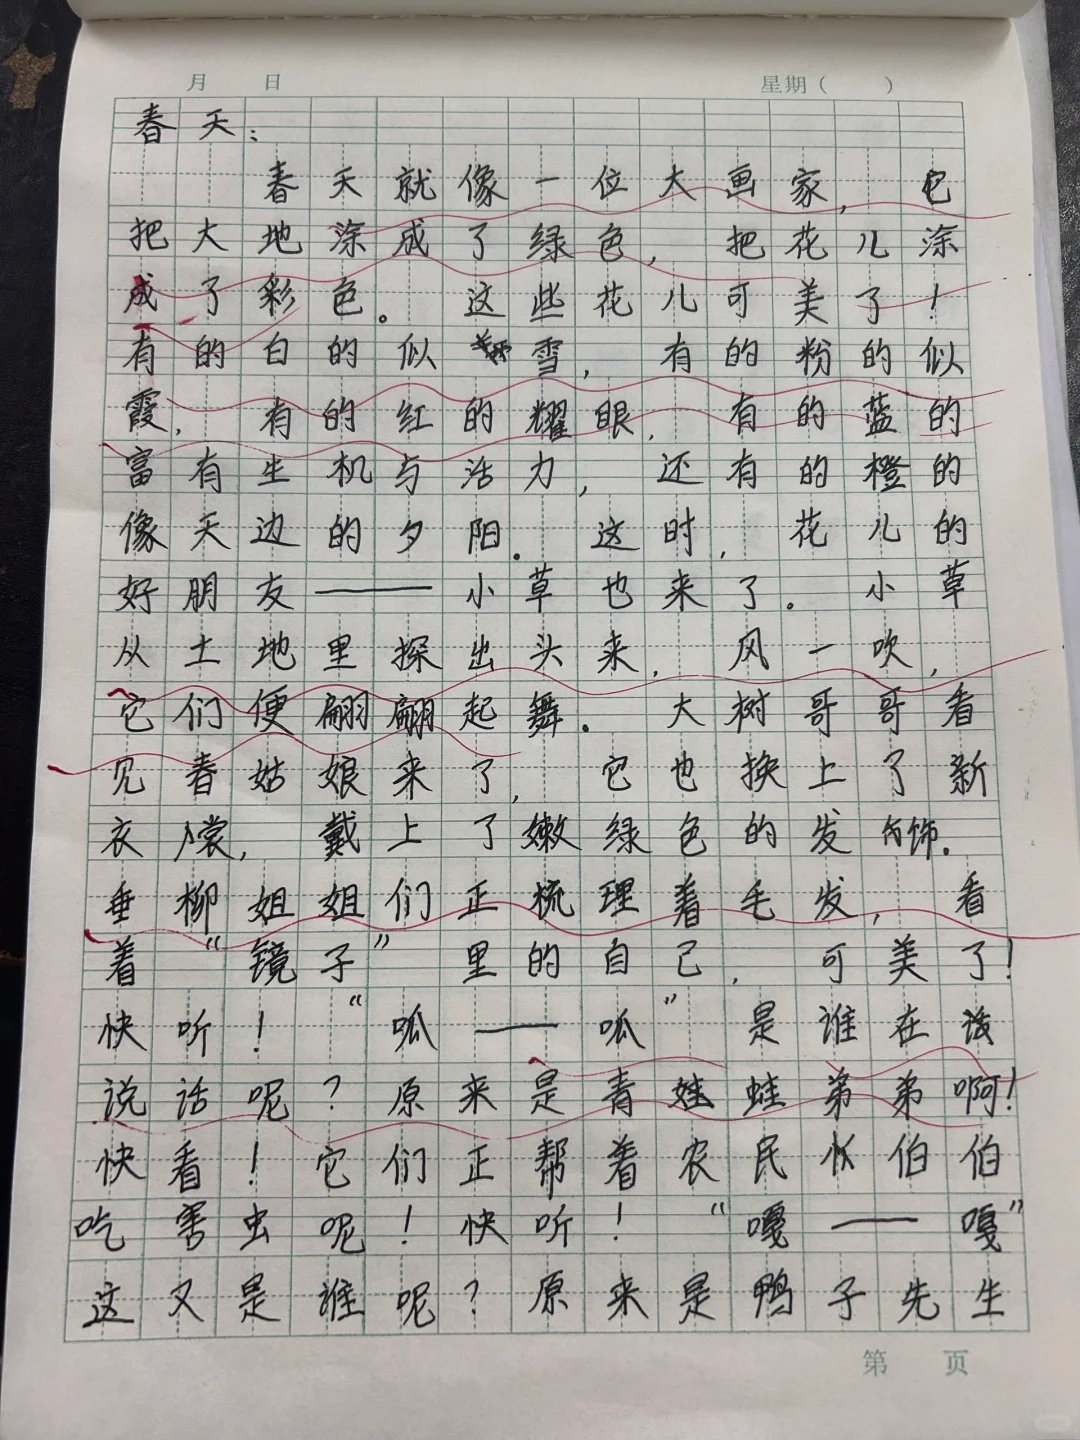 月 日 星期（ ）
春天：
春天就像一位大画家，它
把大地涂成了绿色，把花儿涂
成了彩色。这些花儿可美了！
有的白的似雪，有的粉的似
霞，有的红的耀眼，有的蓝的
富有生机与活力，还有的橙的
像天边的夕阳。这时，花儿的
好朋友——小草也来了。小草
从土地里探出头来，风一吹，
它们便翩翩起舞。大树哥哥看
见春姑娘来了，它也换上了新
衣裳，戴上了嫩绿色的发饰。
垂柳姐姐们正梳理着毛发，看
着“镜子”里的自己，可美了！
快听！“呱——呱”是谁在
说话呢？原来是青蛙蛙弟弟啊！
快看！它们正帮着农民伯伯
吃害虫呢！快听！“嘎——嘎”
这又是谁呢？原来是鸭子先生
第 页